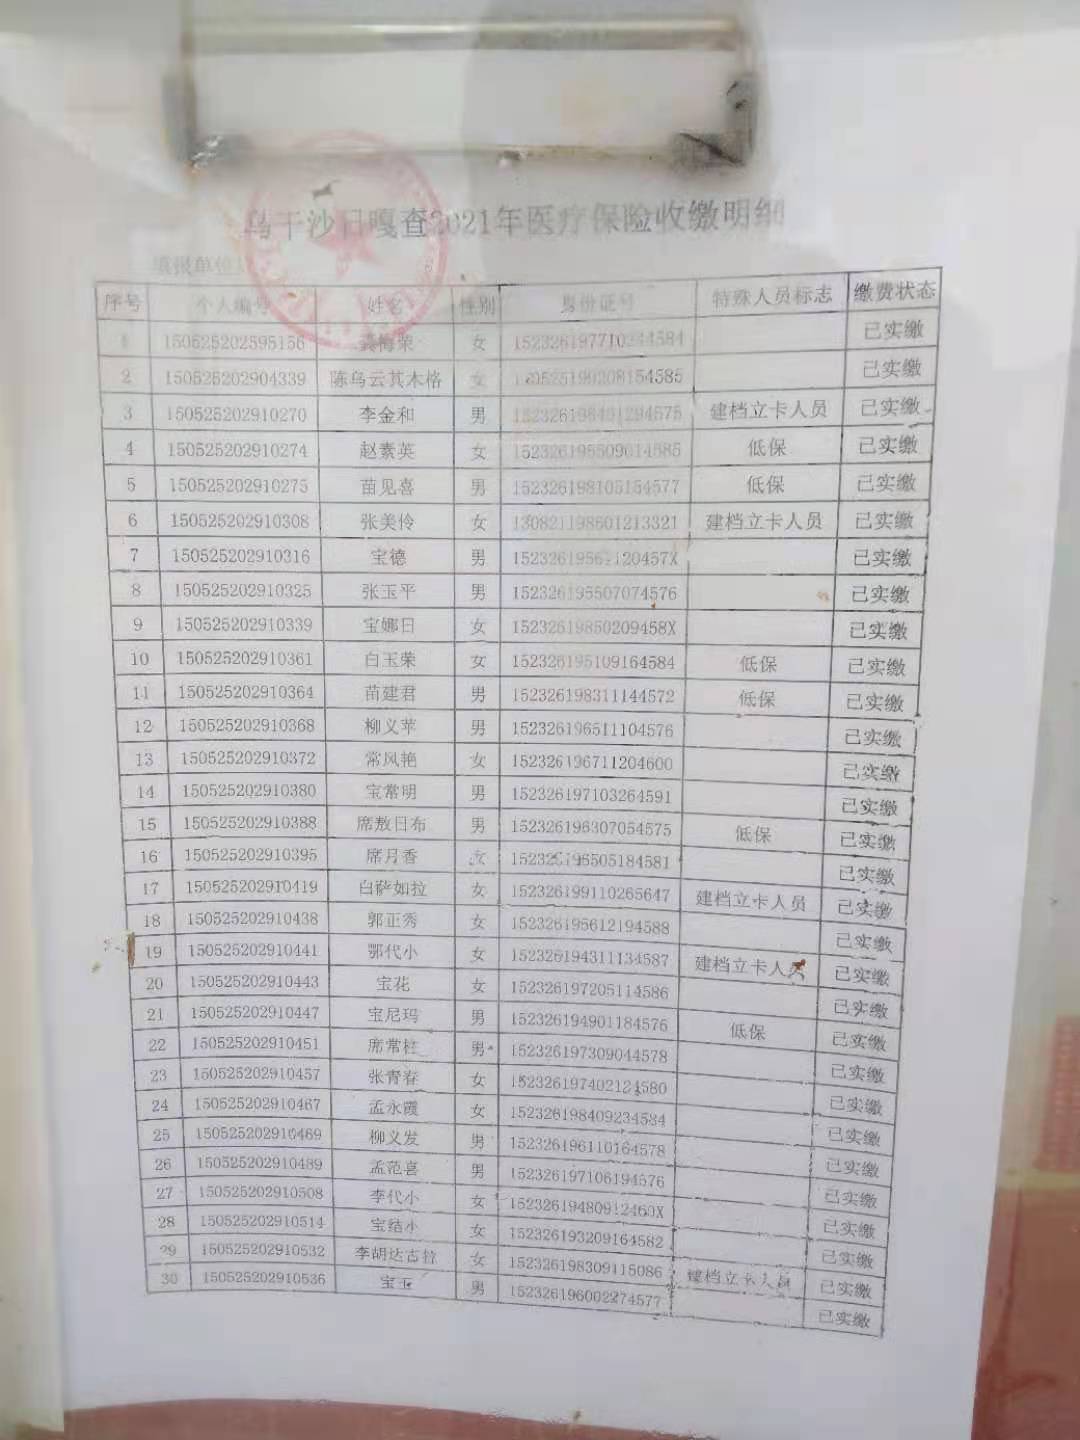 乌干沙日嘎查2021年医疗保险收缴明细
填报单位
序号 个人编号 姓名 性别 身份证号 特殊人员标志 缴费状态
1 150525202595156 梅荣 女 已实缴
2 150525202904339 陈乌云其木格 女 已实缴
3 150525202910270 李金和 男 建档立卡人员 已实缴
4 150525202910274 赵素英 女 低保 已实缴
5 150525202910275 苗见喜 男 152326198105154577 低保 已实缴
6 150525202910308 张美伶 女 130821198601213321 建档立卡人员 已实缴
7 150525202910316 宝德 男 已实缴
8 150525202910325 张玉平 男 152326195507074576 已实缴
9 150525202910339 宝娜日 女 15232619850209458X 已实缴
10 150525202910361 白玉荣 女 152326195109164584 低保 已实缴
11 150525202910364 苗建君 男 152326198311144572 低保 已实缴
12 150525202910368 柳义苹 男 152326196511104576 已实缴
13 150525202910372 常风艳 女 152326196711204600 已实缴
14 150525202910380 宝常明 男 152326197103264591 已实缴
15 150525202910388 席敖日布 男 152326196307054575 低保 已实缴
16 150525202910395 席月香 女 152326196505184581 已实缴
17 150525202910419 白萨如拉 女 152326199110265647 建档立卡人员 已实缴
18 150525202910438 郭正秀 女 152326195612194588 已实缴
19 150525202910441 鄂代小 女 152326194311134587 建档立卡人员 已实缴
20 150525202910443 宝花 女 152326197205114586 已实缴
21 150525202910447 宝尼玛 男 152326194901184576 低保 已实缴
22 150525202910451 席常柱 男 152326197309044578 已实缴
23 150525202910457 张青春 女 152326197402124580 已实缴
24 150525202910467 孟永霞 女 152326198409234584 已实缴
25 150525202910469 柳义发 男 152326196110164578 已实缴
26 150525202910489 孟范喜 男 152326197106194576 已实缴
27 150525202910508 李代小 女 15232619480912460X 已实缴
28 150525202910514 宝结小 女 152326193209164582 已实缴
29 150525202910532 李胡达古拉 女 152326198309115086 建档立卡人员 已实缴
30 150525202910536 宝玉 男 152326196002274577 已实缴